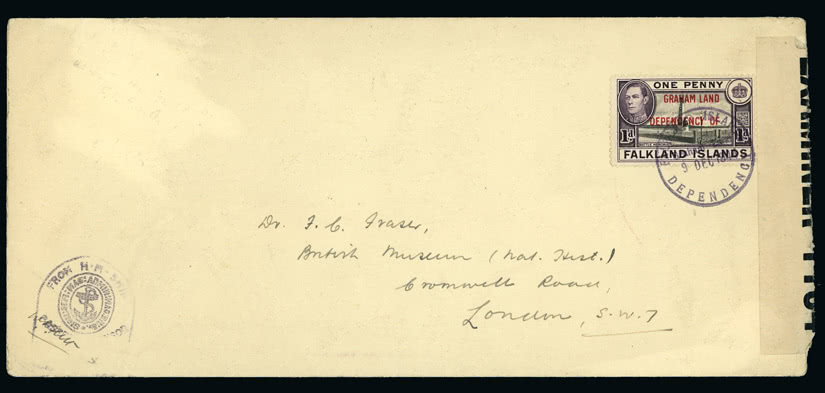 ONE PENNY
GRAHAM LAND
DEPENDENCY OF
1d 1d
FALKLAND ISLANDS
9 DEC
DEPENDENC
Dr. F. C. Fraser,
British Museum (Nat. Hist.)
Cromwell Road,
London, S.W.7
FROM H.M. SHIP
EXAMINER